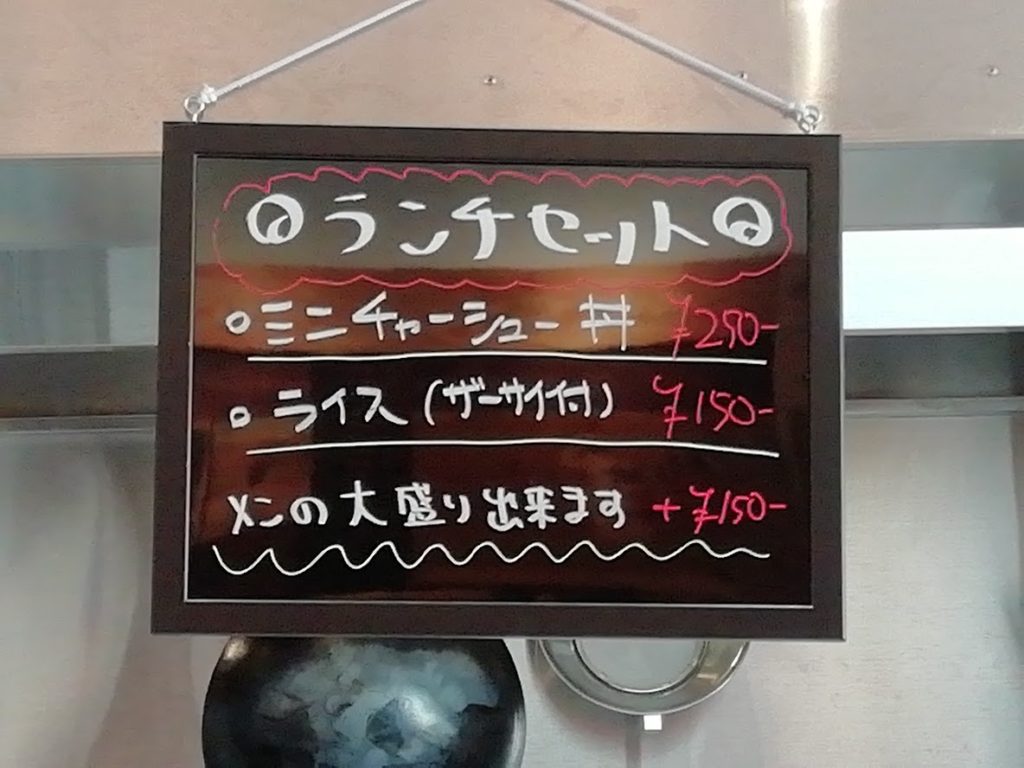 ランチセット
○ミニチャーシュー丼 ¥250-
○ライス(ザーサイ付) ¥150-
メンの大盛り出来ます +¥150-